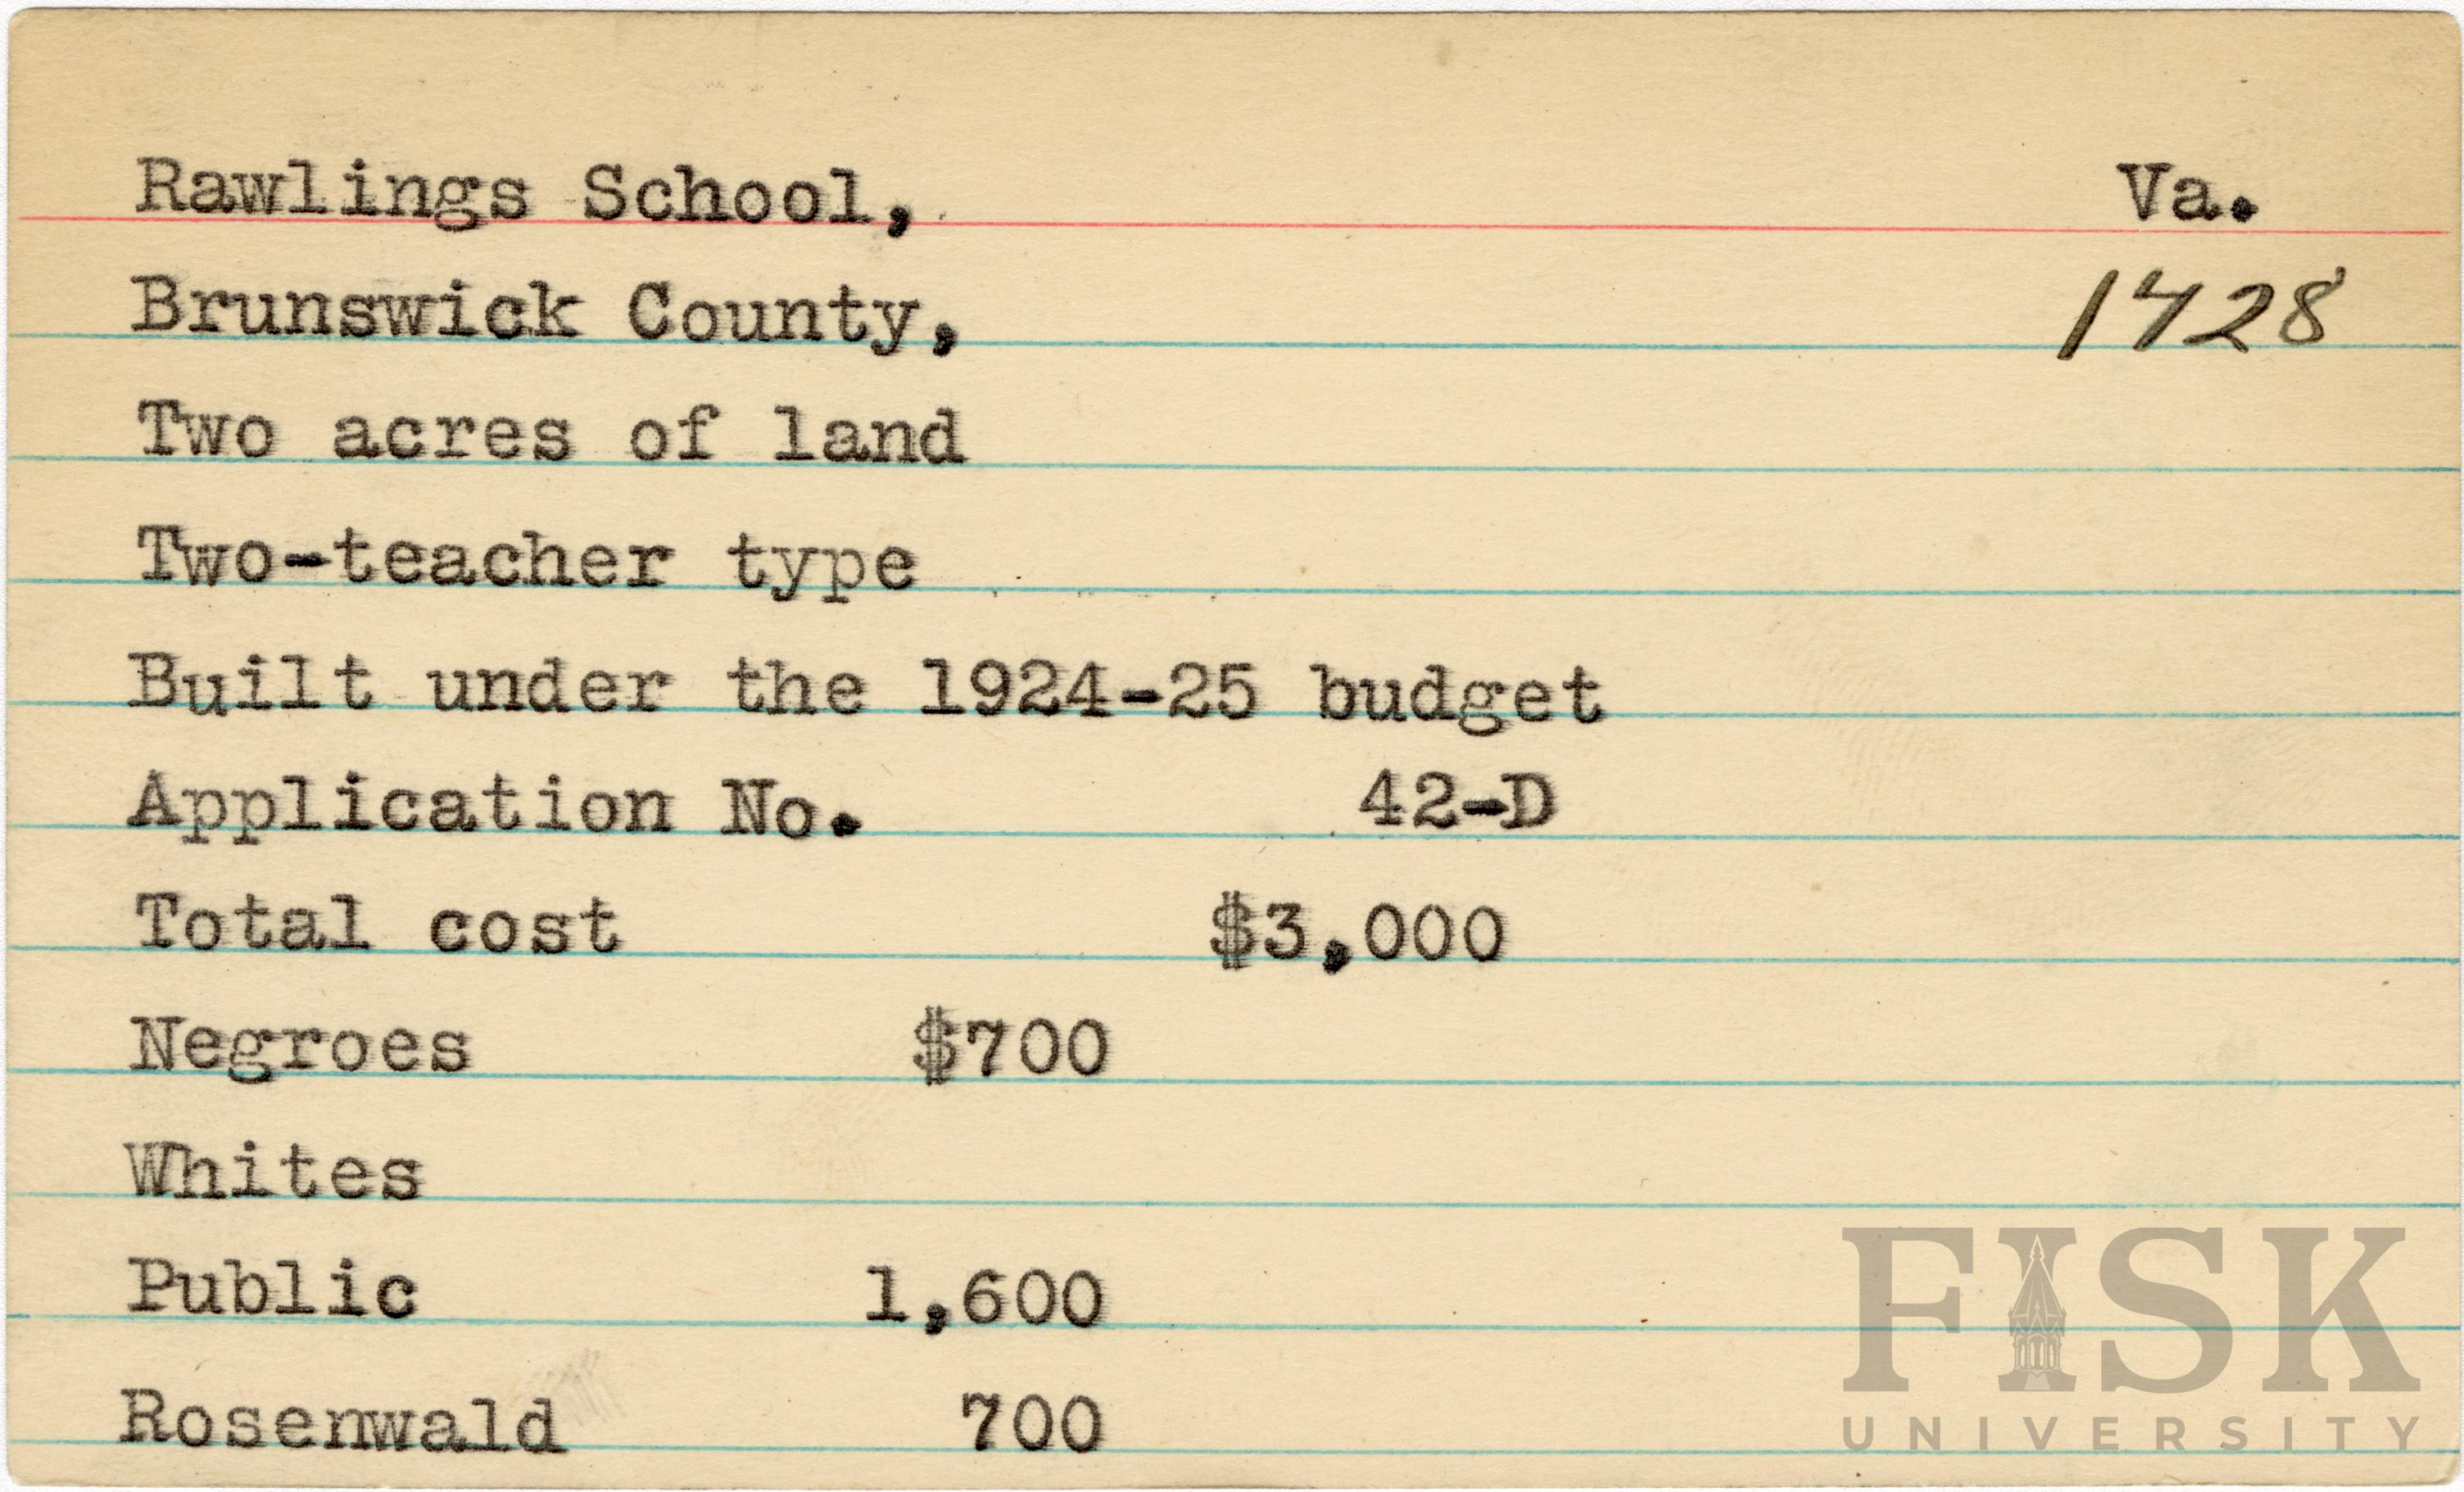 Rawlings School, Va.
Brunswick County, 1428
Two acres of land
Two-teacher type
Built under the 1924-25 budget
Application No. 42-D
Total cost $3,000
Negroes $700
Whites
Public 1,600
Rosenwald 700
FISK
UNIVERSITY